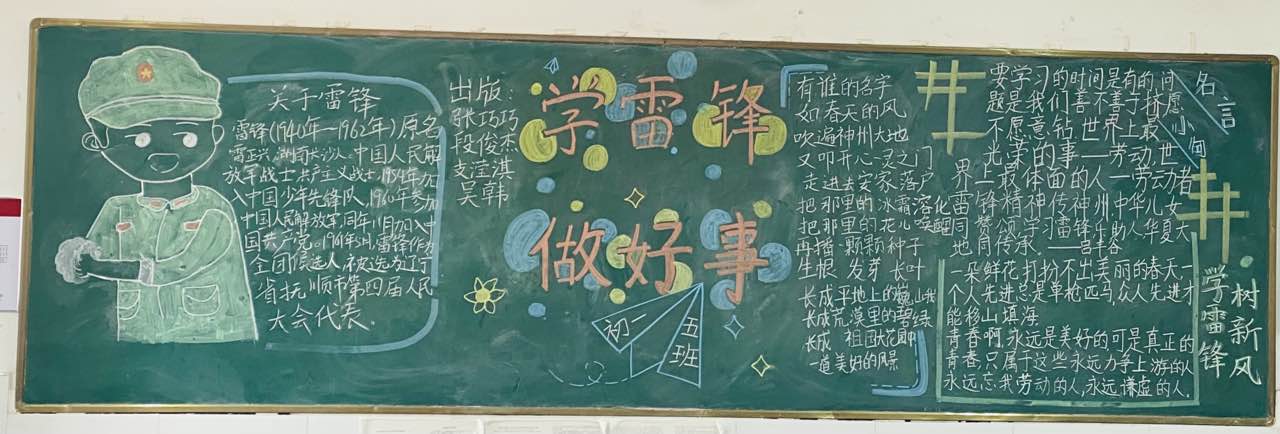 关于雷锋
雷锋(1940年~1962年)原名
雷正兴,湖南长沙人,中国人民解
放军战士,共产主义战士,1954年加
入中国少年先锋队,1960年参加
中国人民解放军,同年11月加入中
国共产党。1961年5月,雷锋作为
全团候选人,被选为辽宁
省抚顺市第四届人民
大会代表.
出版:
张巧巧
段俊杰
支滢淇
吴韩
学雷锋
做好事
初一
五班
有谁的名字
如春天的风
吹遍神州大地
又叩开心灵之门
走进去安家落户
把那里的冰霜溶化
把那里的花儿唤醒
再播一颗颗种子
生根发芽长叶
长成平地上的巍山峨
长成荒漠里的碧绿
长成祖国大花园
一道美好的风景
名言
小间
要学习的时间是有的,问
题是我们善不善于挤,愿
不愿意钻.世界上最
光荣的事——劳动.世
界上最体面的人——劳动者
雷锋精神传神州中华儿女
同赞颂.学习雷锋乐助人华夏大
地同传承.——吕丰春
一朵鲜花打扮不出美丽的春天,一
个人先进总是单枪匹马,众人先进才
能移山填海
青春啊,永远是美好的,可是真正的
青春,只属于这些永远力争上游的人
永远忘我劳动的人,永远谦虚的人.
学雷锋
树新风